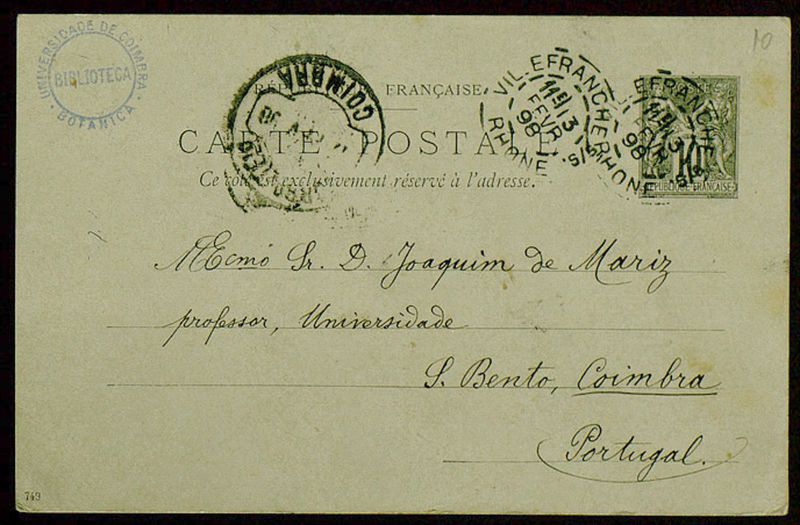 10
UNIVERSIDADE DE COIMBRA
BIBLIOTECA
BOTANICA
FRANÇAISE
CARTE POSTALE
Ce coté est exclusivement réservé à l'adresse.
COIMBRA
VILLEFRANCHE S/S
11E/13
FEVR
98
RHONE
EFRANCHE S/S
11E/13
FEVR
98
RHONE
10
REPUBLIQUE FRANÇAISE
Sr. D. Joaquim de Mariz
professor, Universidade
S. Bento, Coimbra
Portugal.
749